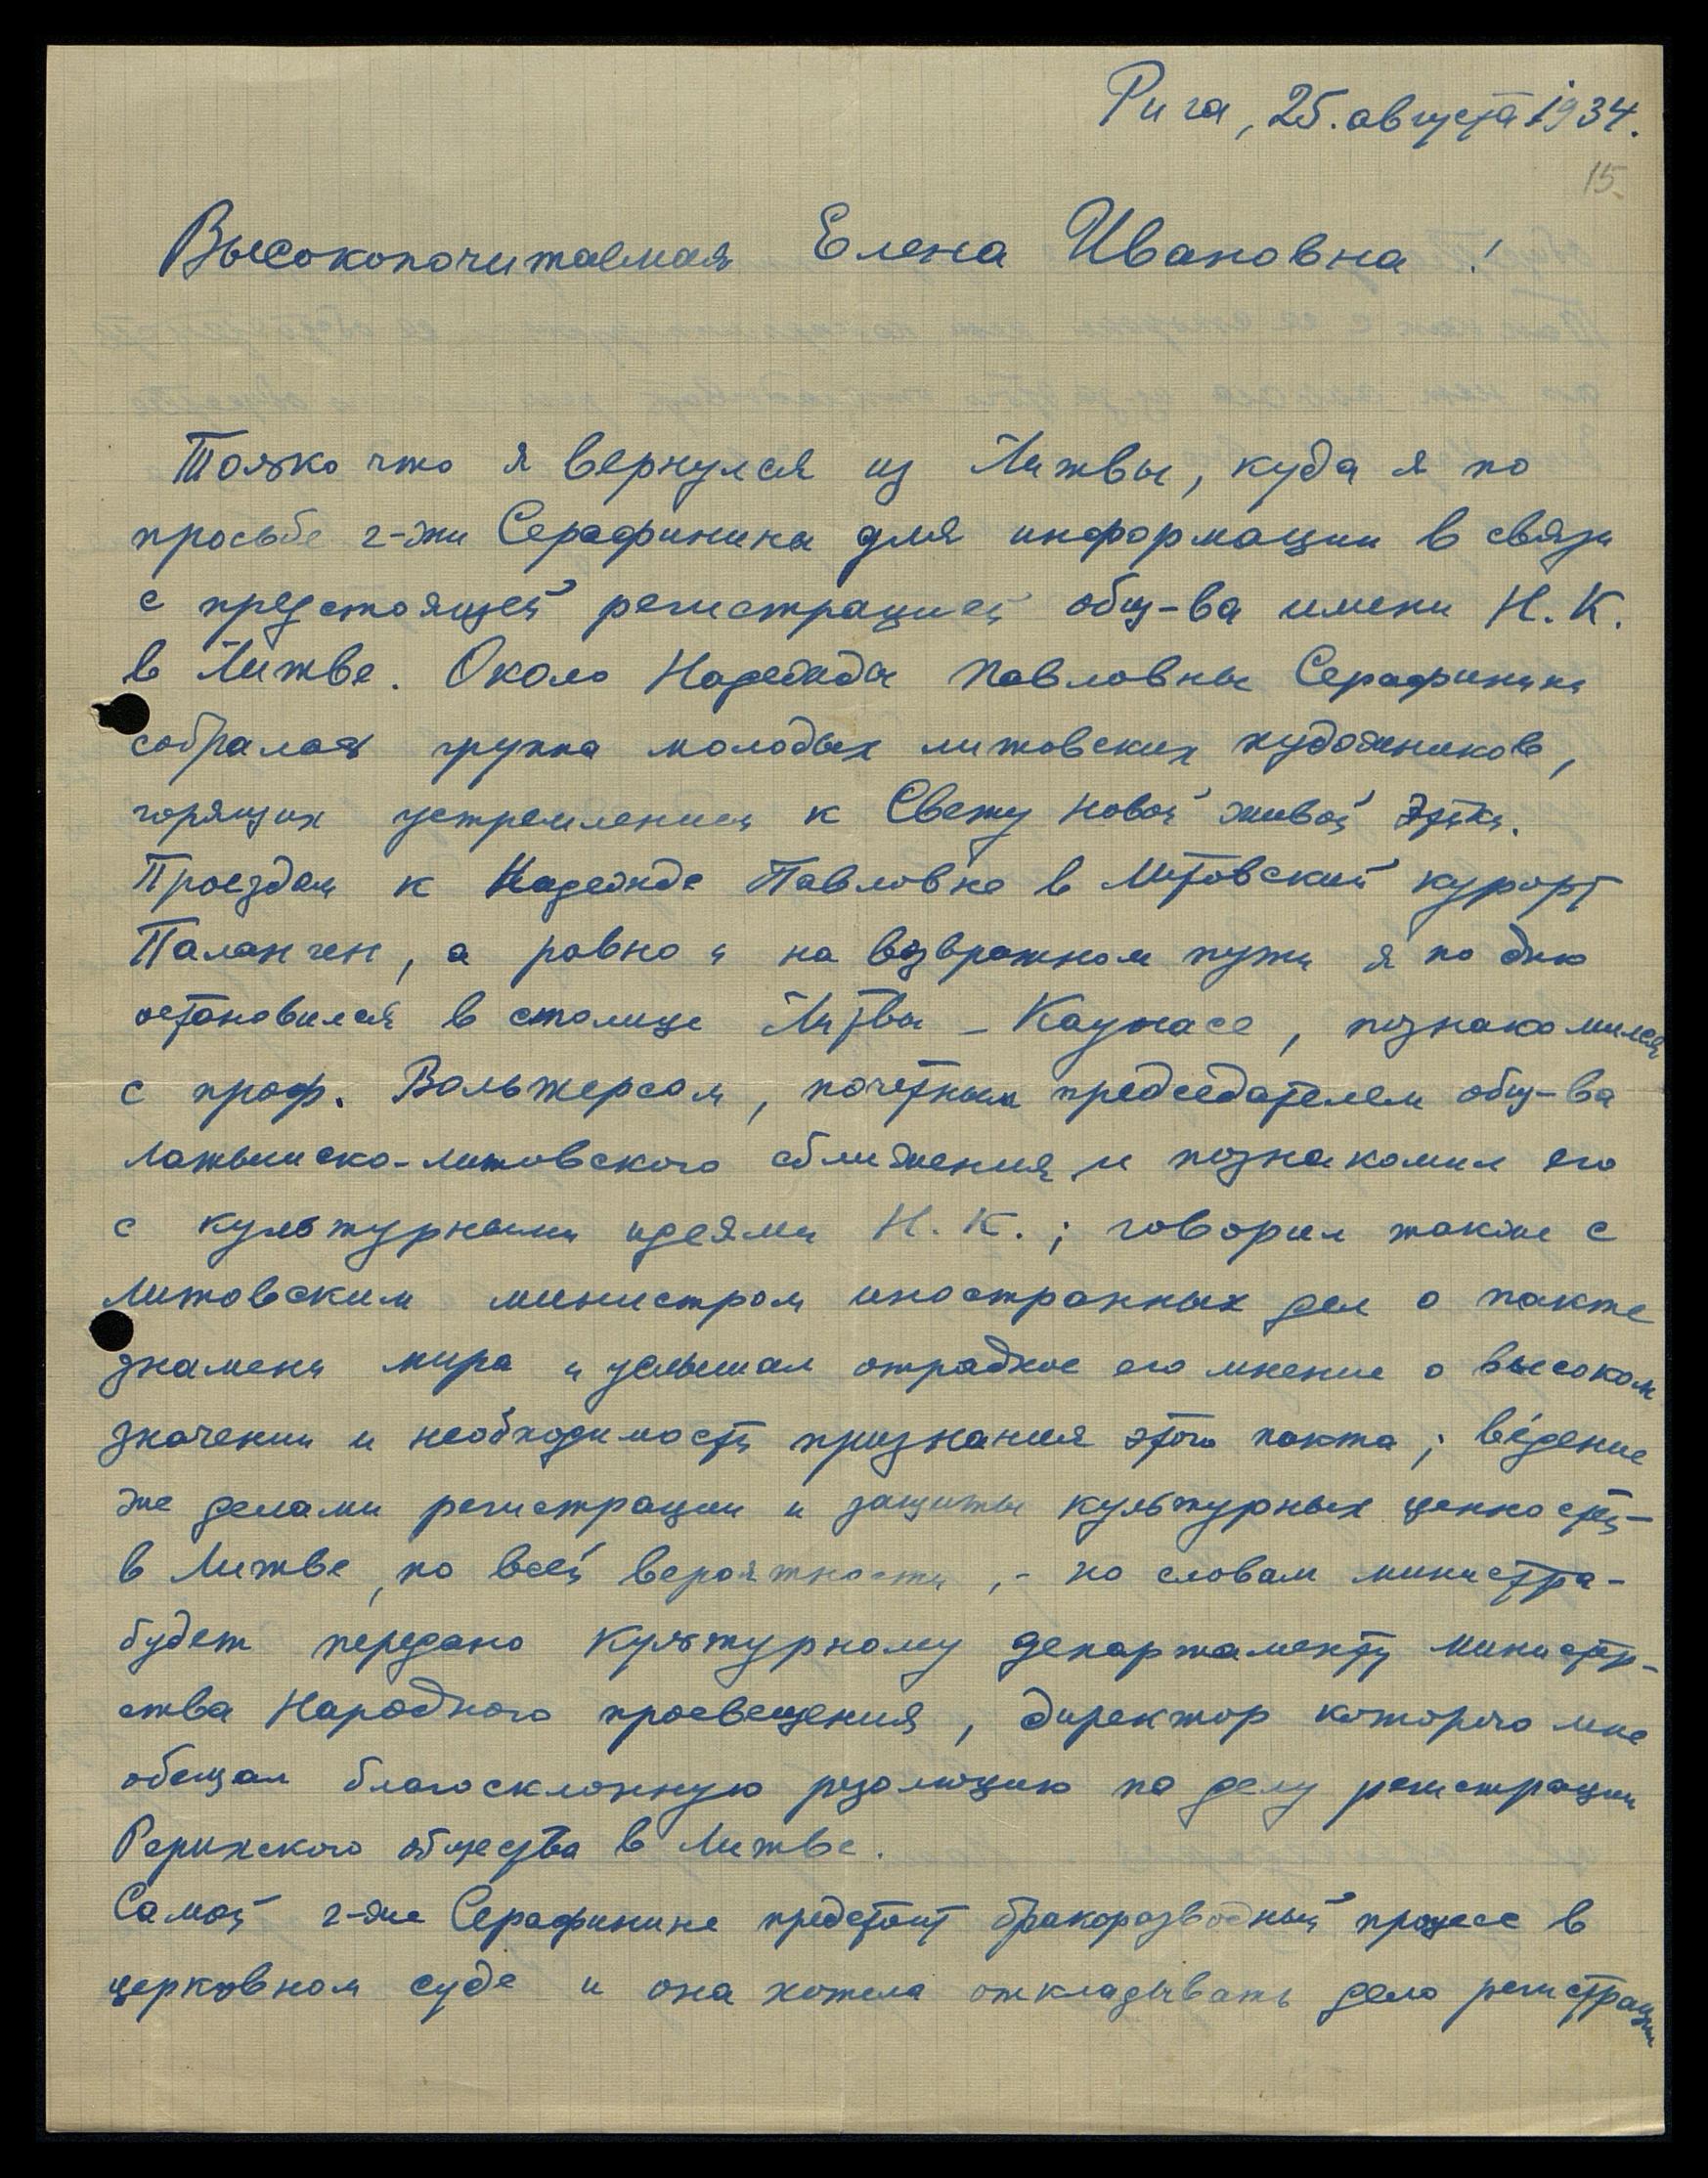 Рига, 25. августа 1934.
15.
Высокопочитаемая Елена Ивановна!
Только что я вернулся из Литвы, куда я по
просьбе г-жи Серафинина для информации в связи
с предстоящей регистрацией общ-ва имени Н.К.
в Литве. Около Надежды Павловны Серафинины
собралась группа молодых литовских художников,
горящих устремлением к Свету новой живой Этики.
Проездом к Надежде Павловне в Литовский курорт
Паланген, а равно и на возвратном пути я по дню
остановился в столице Литвы - Каунасе, познакомился
с проф. Вольтерсом, почетным председателем общ-ва
латвийско-литовского сближения, и познакомил его
с культурными идеями Н.К.; говорил также с
Литовским министром иностранных дел о пакте
знамени мира и услышал отрадное его мнение о высоком
значении и необходимости признания этого пакта; ве́дение
же делами регистрации и защиты культурных ценностей
в Литве, по всей вероятности, - по словам министра -
будет передано культурному департаменту министр-
ства Народного просвещения, директор которого мне
обещал благосклонную резолюцию по делу регистрации
Рериховского общества в Литве.
Самой г-же Серафинине предстоит бракоразводный процесс в
церковном суде и она хотела откладывать дело регистрации